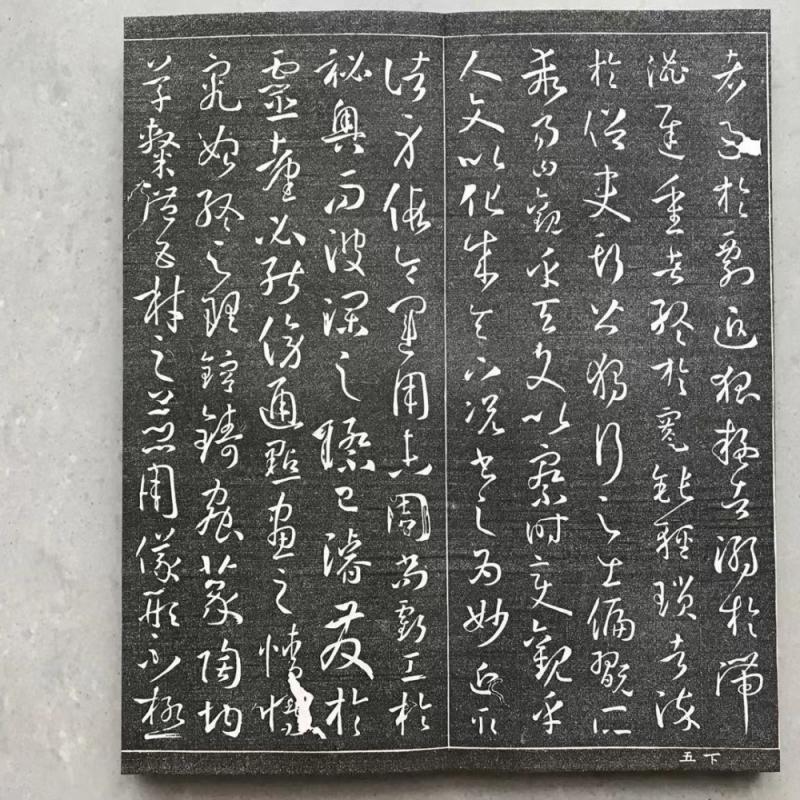 者過於剽迫狐疑者溺於滯
澀遲重者終於蹇鈍輕瑣者染
於俗吏斯皆獨行之士偏翫所
乖易曰觀乎天文以察時變觀乎
人文以化成天下況書之為妙近取
諸身假令運用未周尚虧工於
祕奧而波瀾之際已濬發於
靈臺必能傍通點畫之情博
究始終之理鎔鑄蟲篆陶均
草隸體五材之並用儀形不極
下五